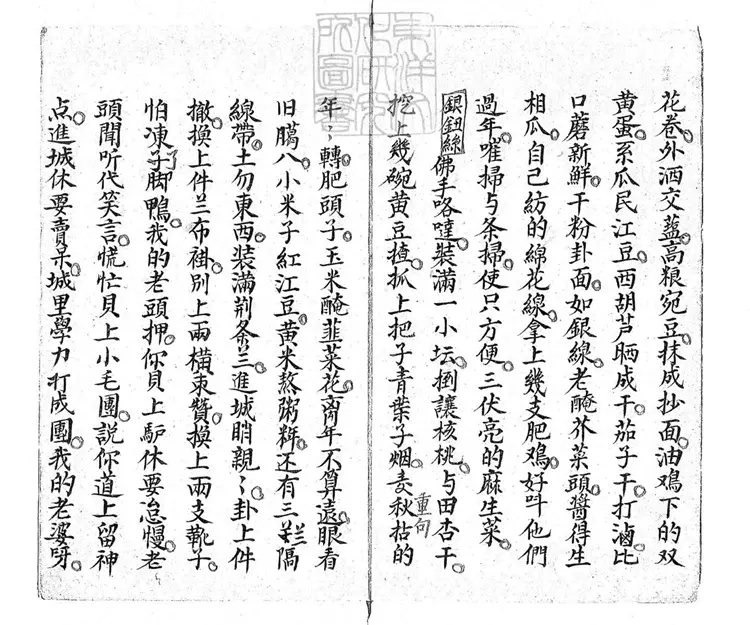 花卷外洒交蓝高粮宛豆抹成抄面油鳮下的双
黄蛋系瓜民江豆西胡芦晒成干茄子干打滷比
口蘑新鮮干粉卦面如銀線老醃芥菜頭醬得生
相瓜自己紡的綿花線拿上幾支肥鳮好叫他們
過年嗺掃与条掃使只方便三伏亮的麻生菜
銀鈕絲 佛手咯噠裝滿一小坛捯讓核桃与田杏干 重句
挖上幾碗黄豆揸抓上把子青葉子烟麦秋拈的
年〻轉肥頭子玉米醃韮菜花离年不算遠眼看
旧臈八小米子紅江豆黄米熬粥粰还有三隔
線帶土勿東西裝滿荊条三進城眊親〻卦上件
撤換上件兰布褂别上兩横朿簪換上兩支靴子
怕凍了子脚鴨我的老頭押你貝上馿休要怠慢老
頭聞听代笑言慌忙貝上小毛團説你道上留神
点進城休要賣呆城里學力打成團我的老婆呀
東洋文化研究所圖書